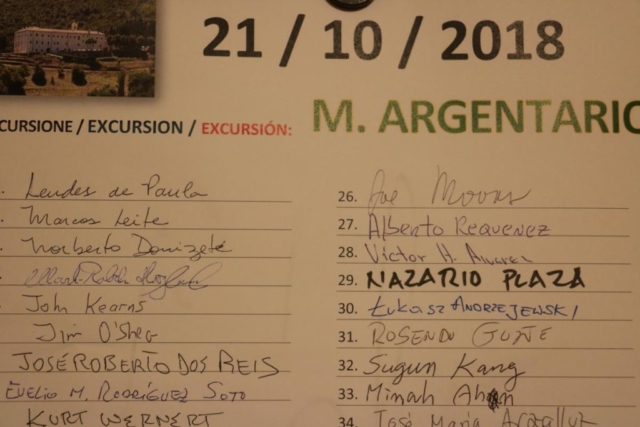 21 / 10 / 2018
CURSIONE / EXCURSION / EXCURSIÓN: M. ARGENTARIO
. Lendes de Paula
. Marcos Leite
. Norberto Donizete
.
. John Kearns
Jim O'Shea
JOSÉ ROBERTO DOS REIS
EVELIO M. RODRÍGUEZ SOTO
KURT WERNERT
26. Joe
27. Alberto Requenez
28. Víctor H. Alvarez
29. NAZARIO PLAZA
30. Łukasz ANDRZEJEWSKI
31. ROSENDO
32. Sugun Kang
33. Minah Ahn
34. José María Arzalluz